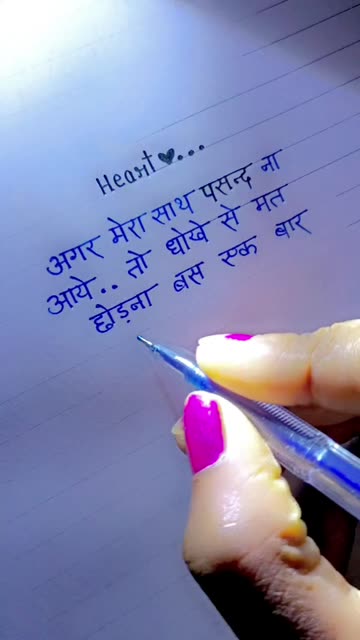 Heart♥...
अगर मेरा साथ पसन्द ना
आये.. तो धोखे से मत
छोड़ना बस एक बार